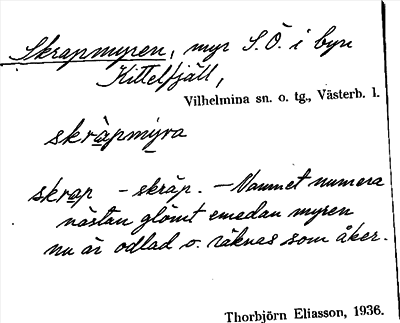 Skrapmyren, myr S.Ö. i byn
Kittelfjäll,
Vilhelmina sn. o. tg., Västerb. l.
skràpmýra
skrap - skräp. - Namnet numera
nästan glömt emedan myren
nu är odlad o. räknas som åker.
Thorbjörn Eliasson, 1936.